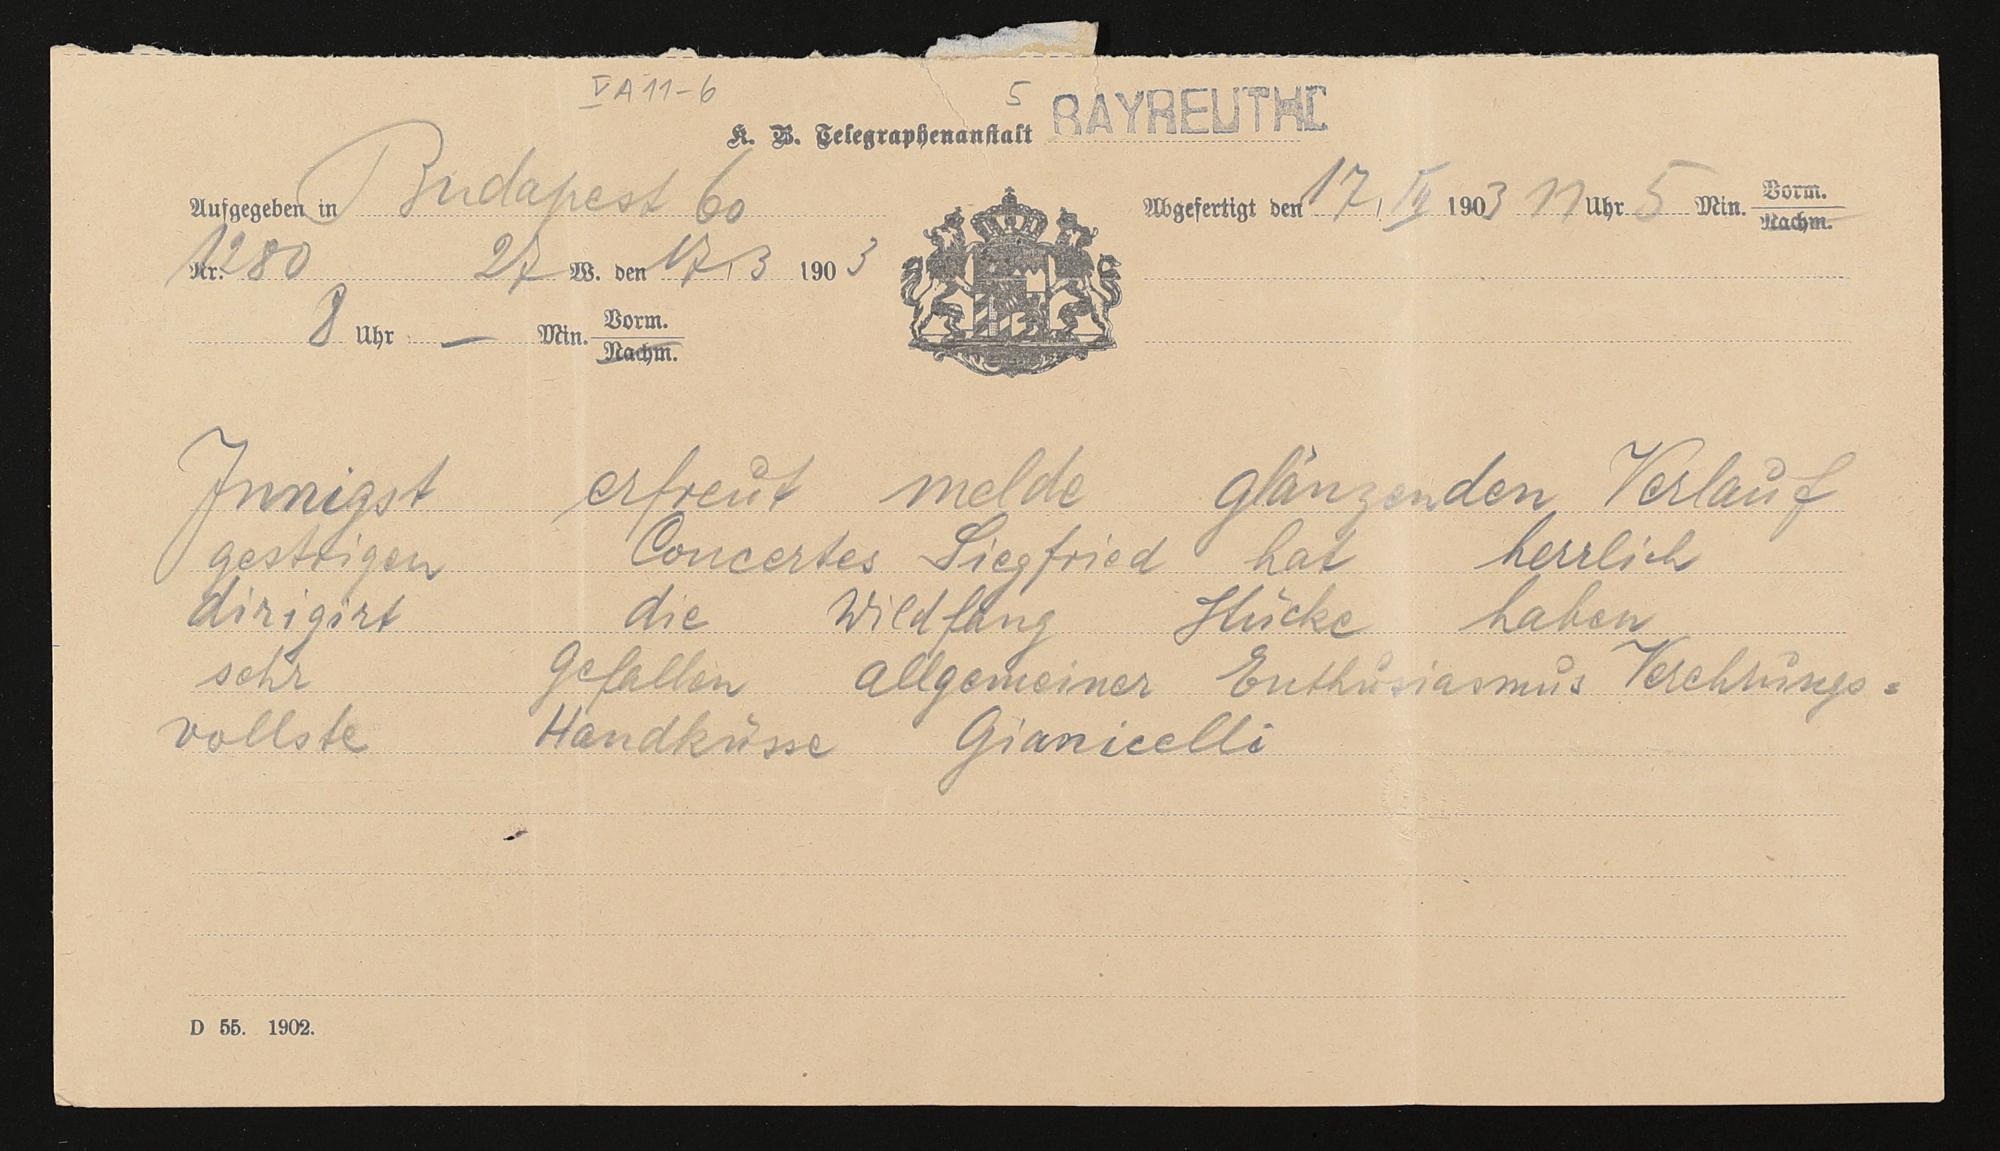 V A 11-6
5
K. B. Telegraphenanstalt BAYREUTH
Aufgegeben in Budapest 60
Abgefertigt den 17. 1903 11 Uhr 5 Min. Vorm. Nachm.
Nr. 1280 27 W. den 17/3 1903
8 Uhr — Min. Vorm. Nachm.
Innigst erfreut melde glänzenden Verlauf
gestrigen Concertes Siegfried hat herrlich
dirigirt die Wildfang Stücke haben
sehr gefallen allgemeiner Enthusiasmus Verehrungs=
vollste Handküsse Gianicelli
D 55. 1902.